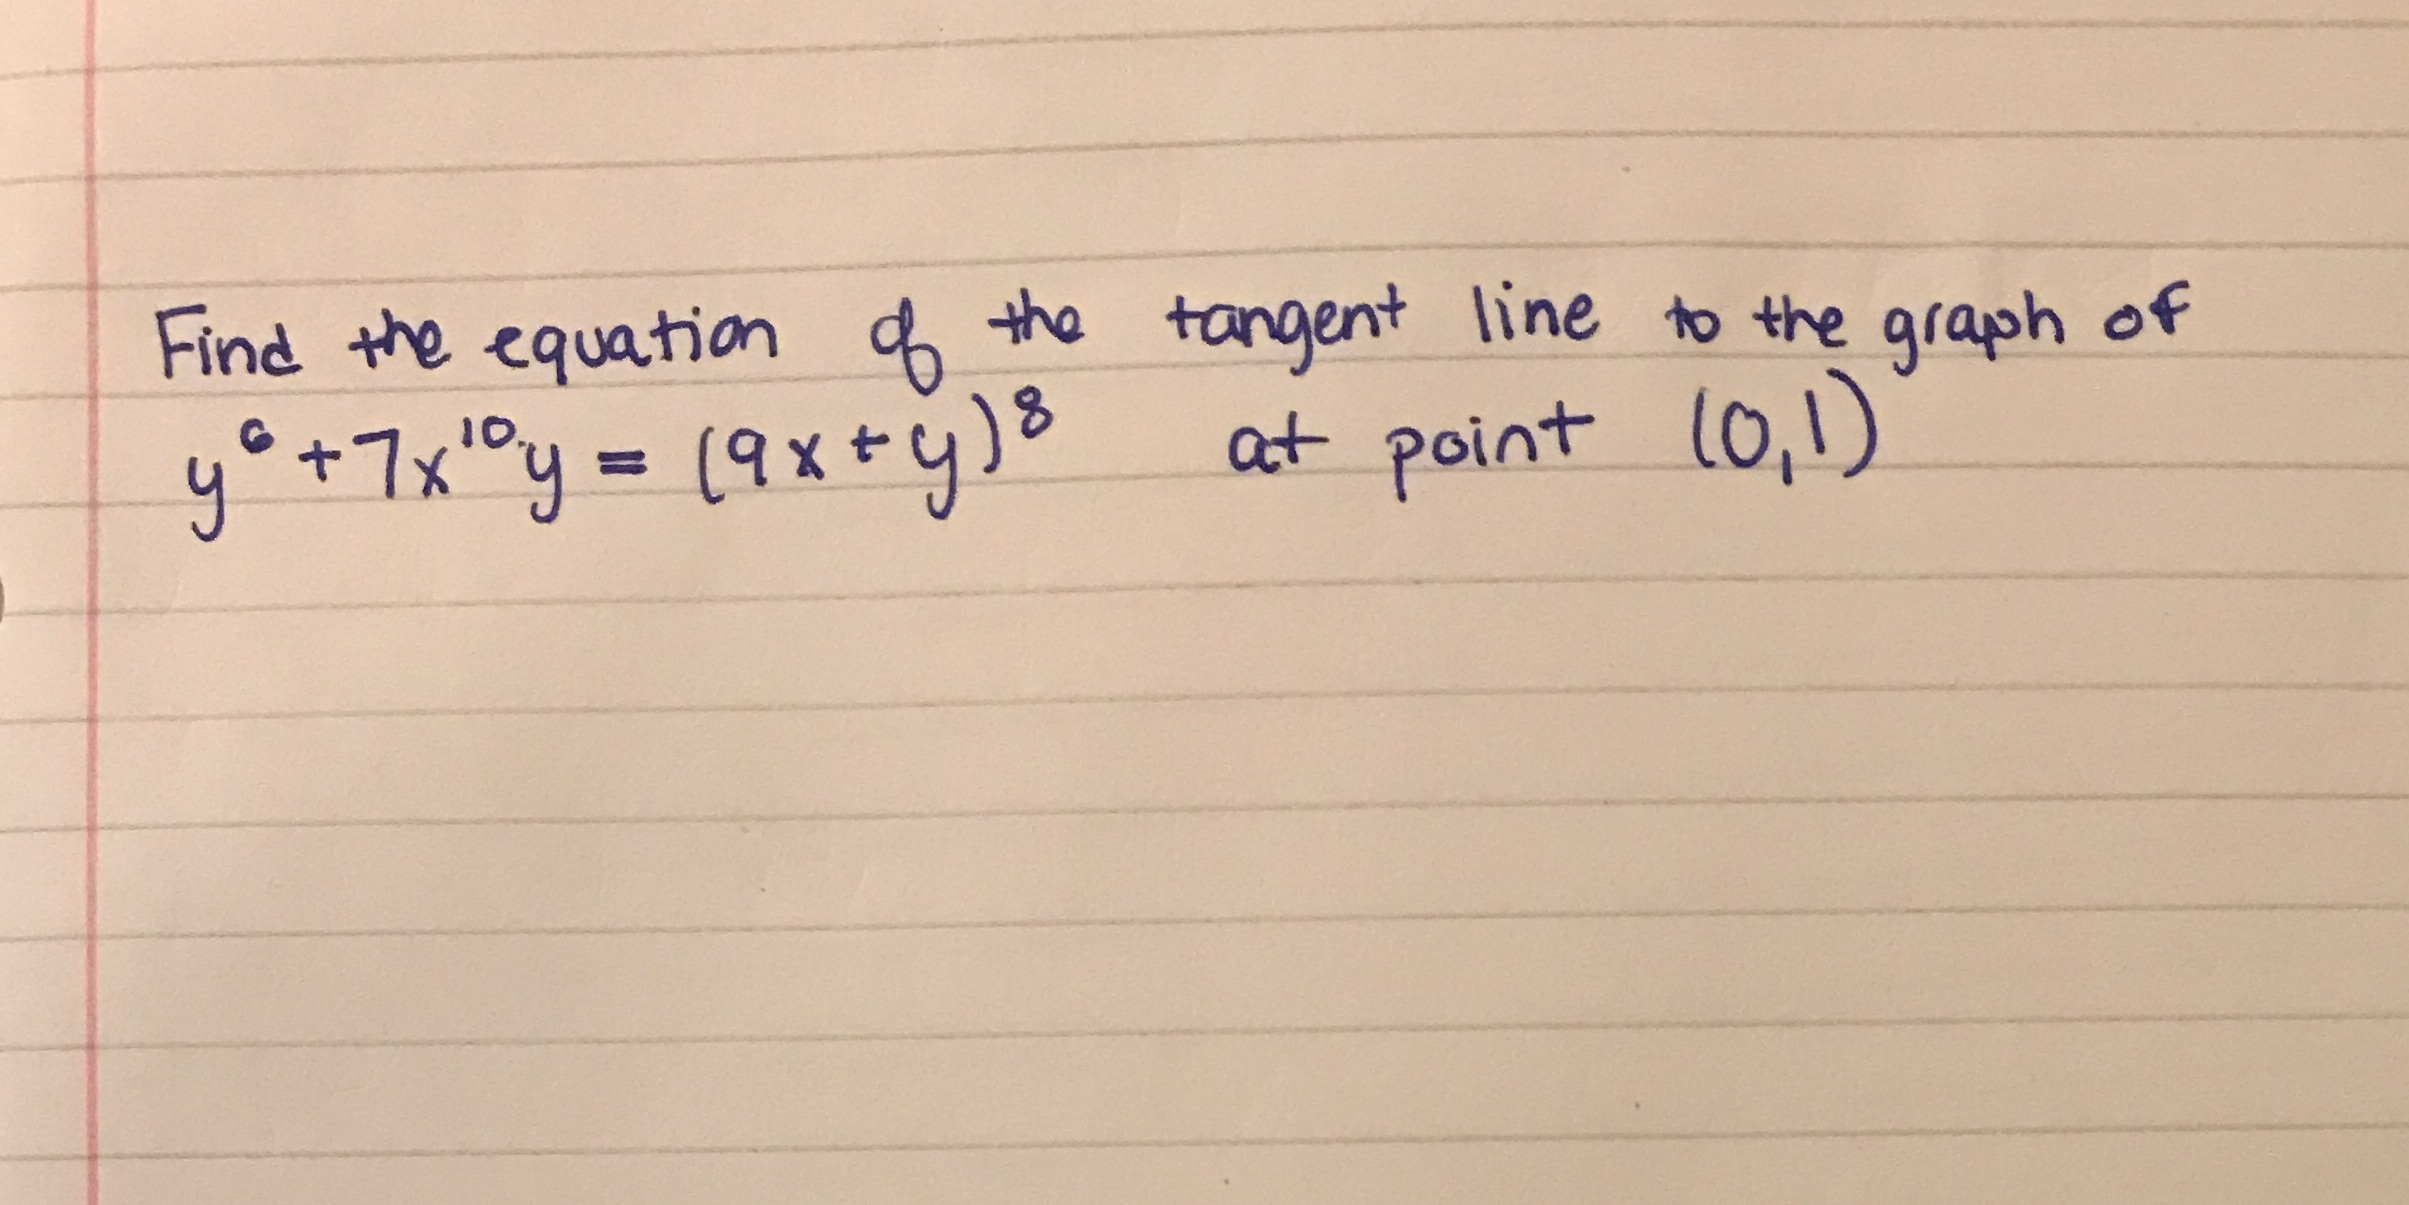 Find the equation of the tangent line to the graph of
y⁶ + 7x¹⁰y = (9x + y)⁸ at point (0,1)